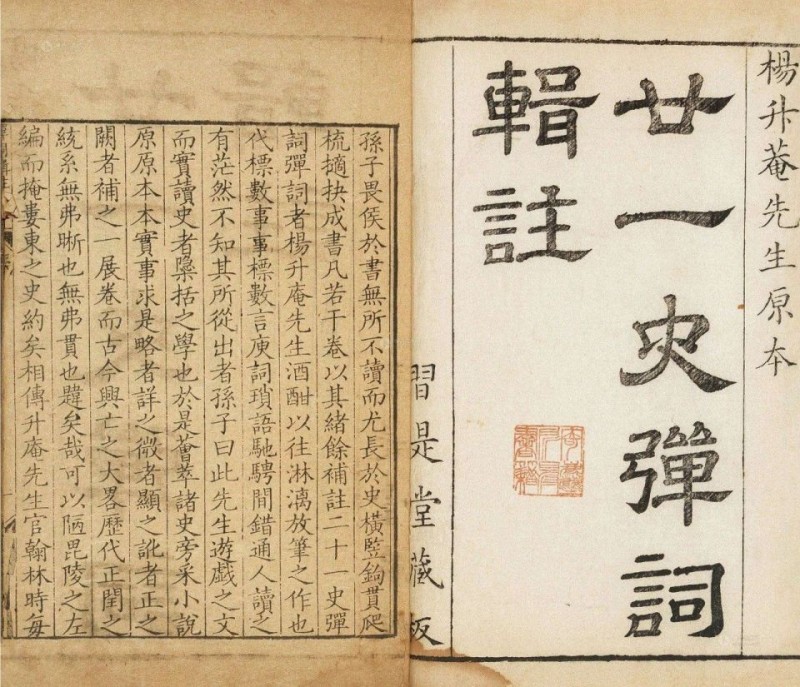 楊升菴先生原本
廿一史彈詞
輯註
習是堂藏板
孫子畏侯於書無所不讀而尤長於史橫竪鉤貫爬
梳擿抉成書凡若干卷以其緒餘補註二十一史彈
詞彈詞者楊升庵先生酒酣以往淋漓放筆之作也
代標數事事標數言庾詞瑣語馳騁間錯通人讀之
有茫然不知其所從出者孫子曰此先生遊戱之文
而實讀史者檃括之學也於是薈萃諸史旁采小說
原原本本實事求是略者詳之微者顯之訛者正之
闕者補之一展卷而古今興亡之大畧歷代正閏之
統系無弗晰也無弗貫也韙矣哉可以陋毘陵之左
編而掩婁東之史約矣相傳升庵先生官翰林時每